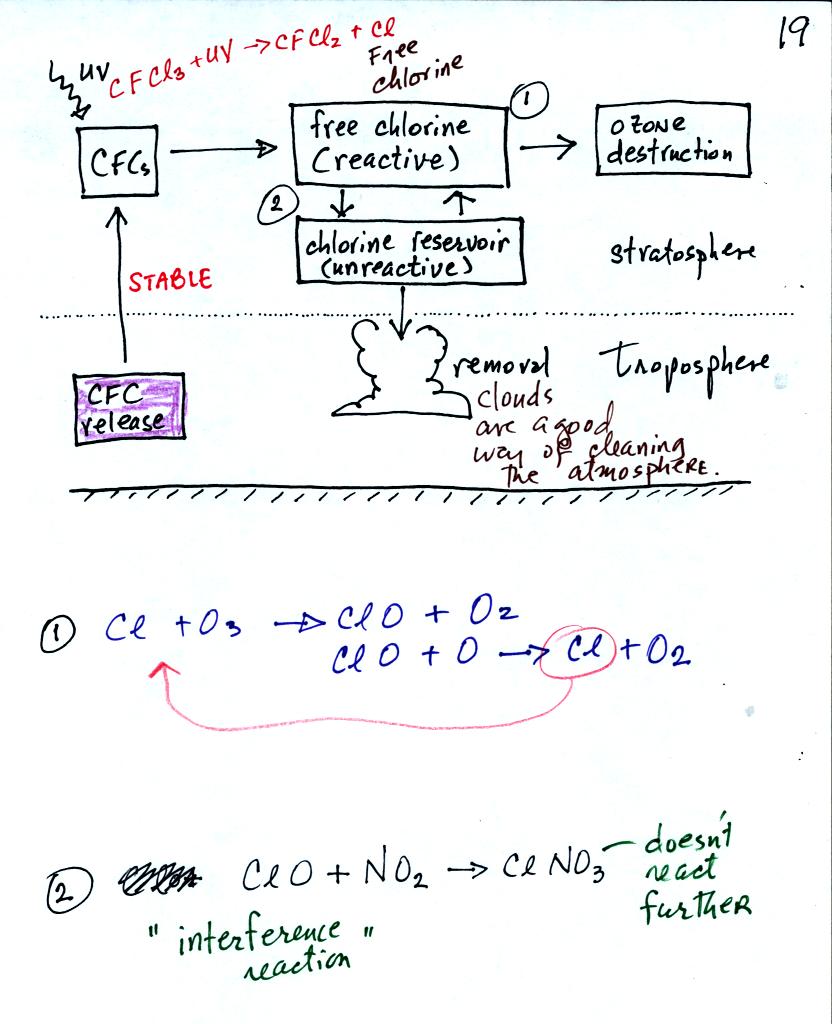 19
UV
CFCl3 + UV → CFCl2 + Cl
Free
chlorine
CFCs
free chlorine
(reactive)
1
OZONE
destruction
2
chlorine reservoir
(unreactive)
stratosphere
STABLE
CFC
release
removal
troposphere
clouds
are a good
way of cleaning
the atmosphere.
1 Cl + O3 → ClO + O2
ClO + O → Cl + O2
2 ClO + NO2 → ClNO3
doesn't
react
further
" interference "
reaction